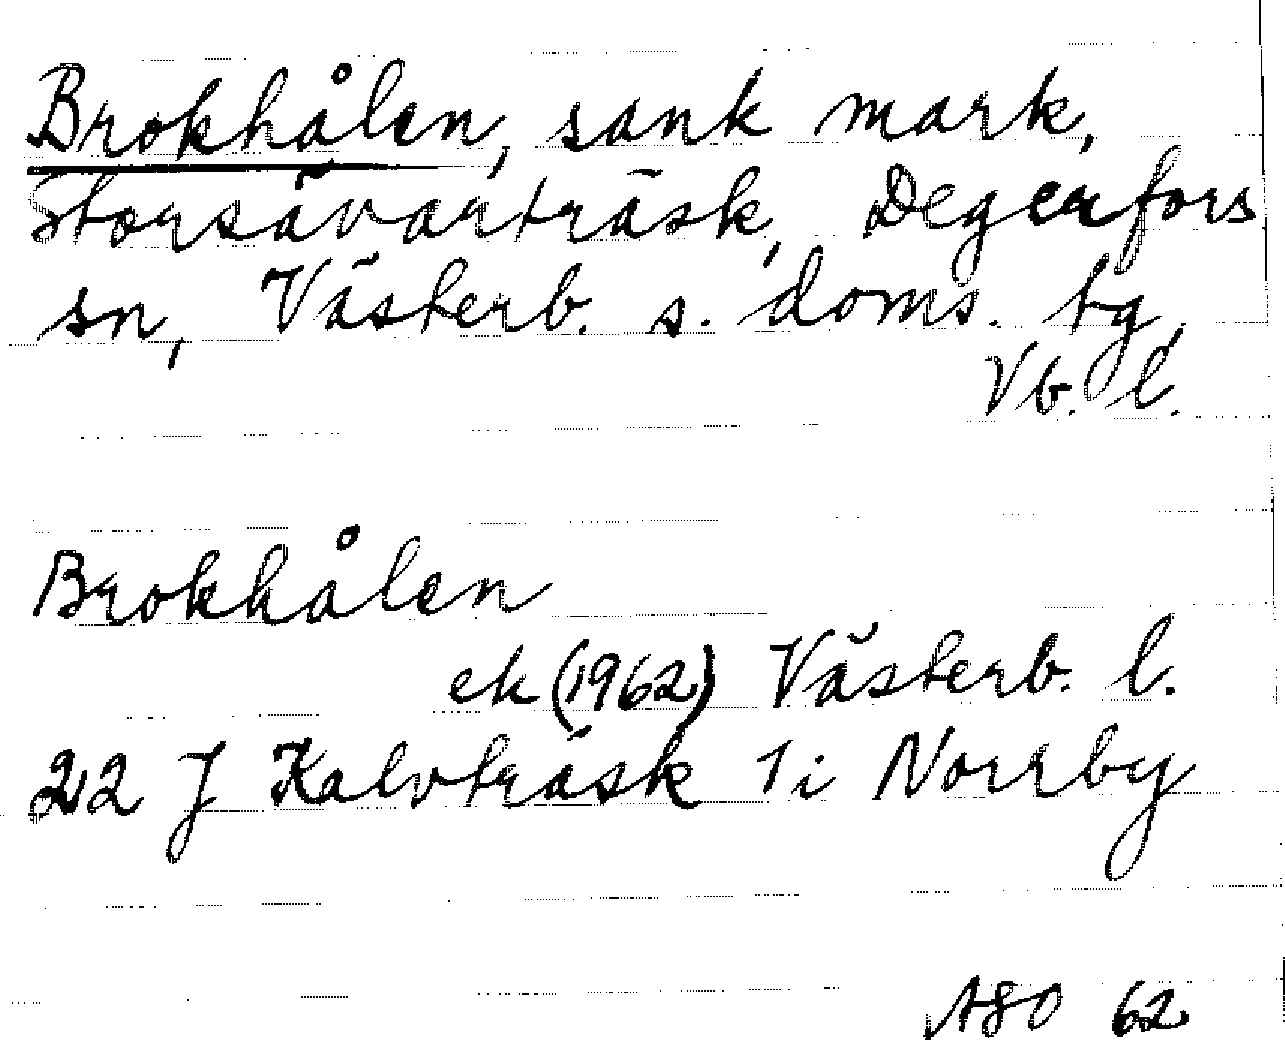 Brokhålen, sank mark,
Storsävarträsk, Degerfors
sn, Västerb. s. doms. tg,
Vb. l.
Brokhålen
ek (1962) Västerb. l.
22 J Kalvträsk 1i Norrby
ASO 62